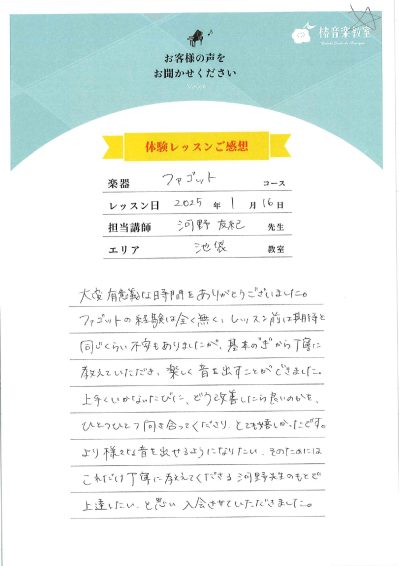 椿音楽教室
お客様の声を
お聞かせください
体験レッスンご感想
楽器 ファゴット コース
レッスン日 2025 年 1 月 16 日
担当講師 河野 友紀 先生
エリア 池袋 教室
大変有意義な時間をありがとうございました。
ファゴットの経験は全く無く、レッスン前は期待と
同じくらい不安もありましたが、基本の"き"から丁寧に
教えていただき、楽しく音を出すことができました。
上手くいかないたびに、どう改善したら良いのかを、
ひとつひとつ向き合ってくださり、とても嬉しかったです。
より様々な音を出せるようになりたい、そのためには
これだけ丁寧に教えてくださる河野先生のもとで
上達したい、と思い入会させていただきました。